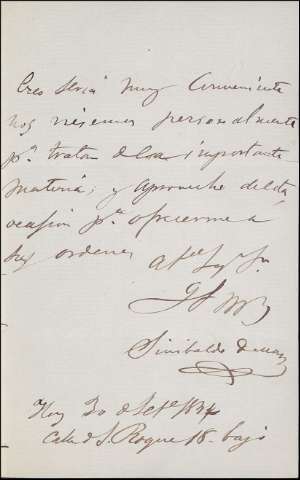 Creo seria muy conveniente
nos viesemos personalmente
pª tratar de esa importante
materia; y aprovecho de esta
ocasion pª ofrecerme a
sus ordenes
Sinibaldo de Mas
Hoy 30 de Setᵉ 1834
Calle de S. Roque 18 - bajo